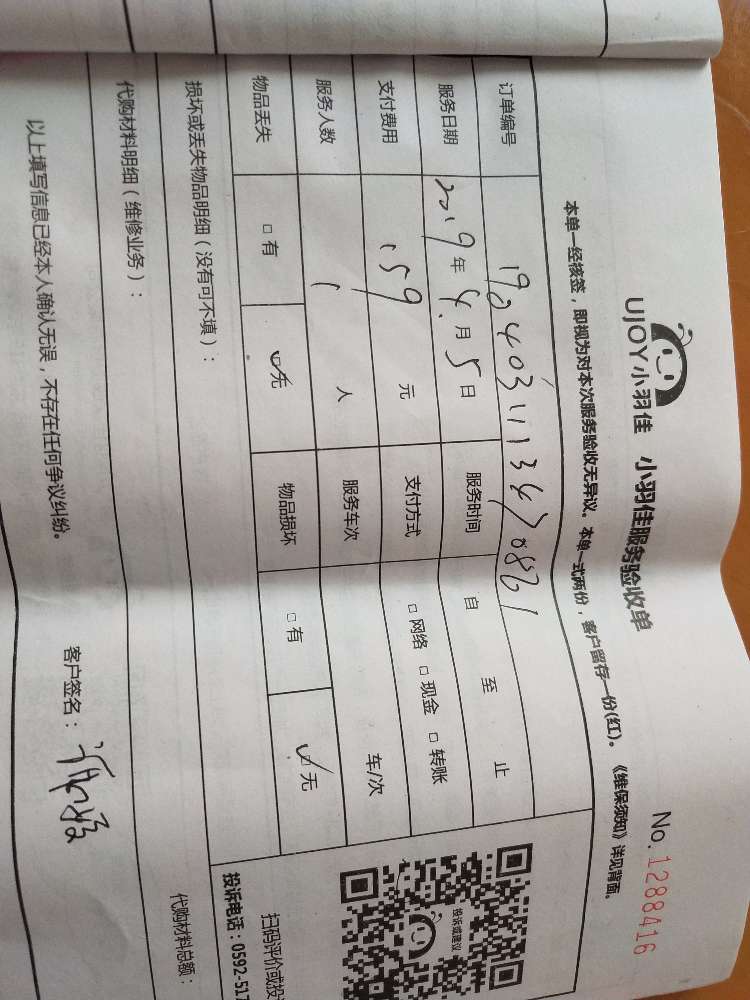 UJOY小羽佳 小羽佳服务验收单 No.1288416
本单一经核签，即视为对本次服务验收无异议。本单一式两份，客户留存一份(红)。《维保须知》详见背面。
订单编号
服务日期 2019年4月5日 服务时间 自 至 止
支付费用 159元 支付方式 □网络 □现金 □转账
服务人数 1 人 服务车次 车/次
物品丢失 □有 ☑无 物品损坏 □有 ☑无
损坏或丢失物品明细（没有可不填）：
代购材料明细（维修业务）：
代购材料总额：
以上填写信息已经本人确认无误，不存在任何争议纠纷。 客户签名：
投诉或建议
扫码评价或投
投诉电话：0592-517